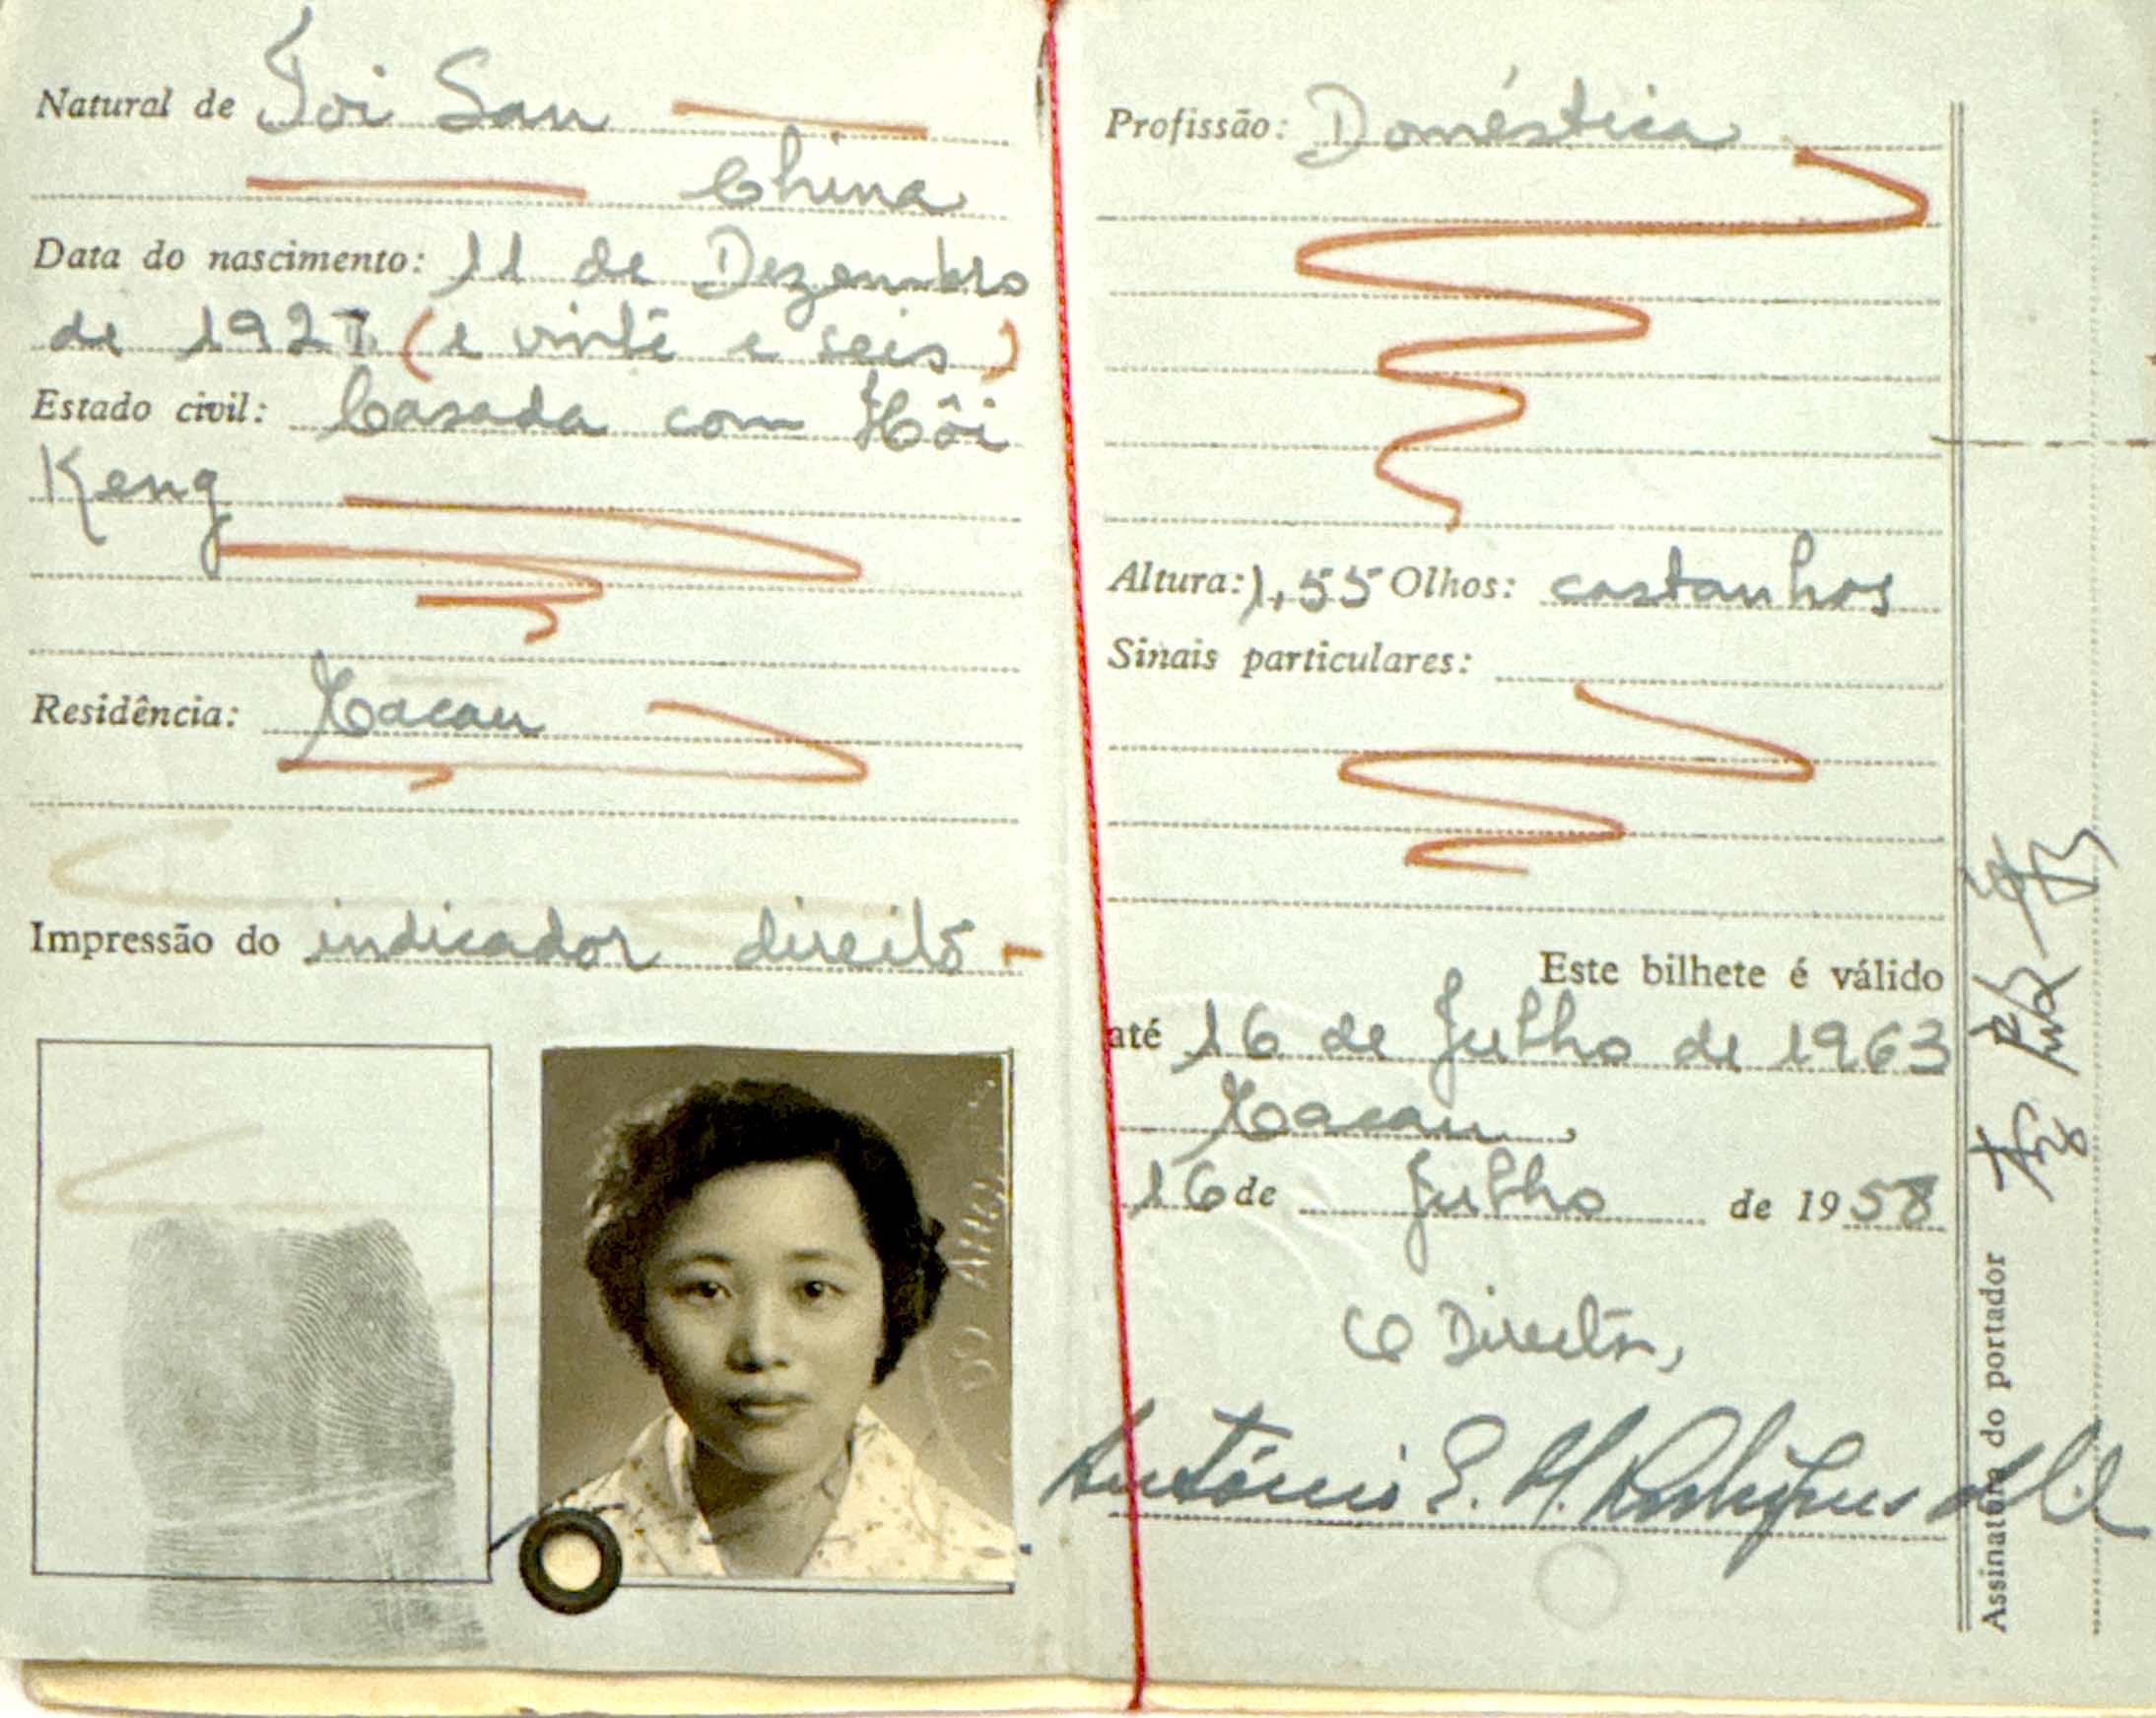 Natural de Toi San
China
Data do nascimento: 11 de Dezembro
de 1927 (e vinte e seis)
Estado civil: Casada com Hôi
Keng
Residência: Macau
Impressão do indicador direito
Profissão: Doméstica
Altura: 1,55 Olhos: castanhos
Sinais particulares:
Este bilhete é válido
até 16 de Julho de 1963
Macau,
16 de Julho de 1958
O Director,
António E. M. Rodrigues
Assinatura do portador
李